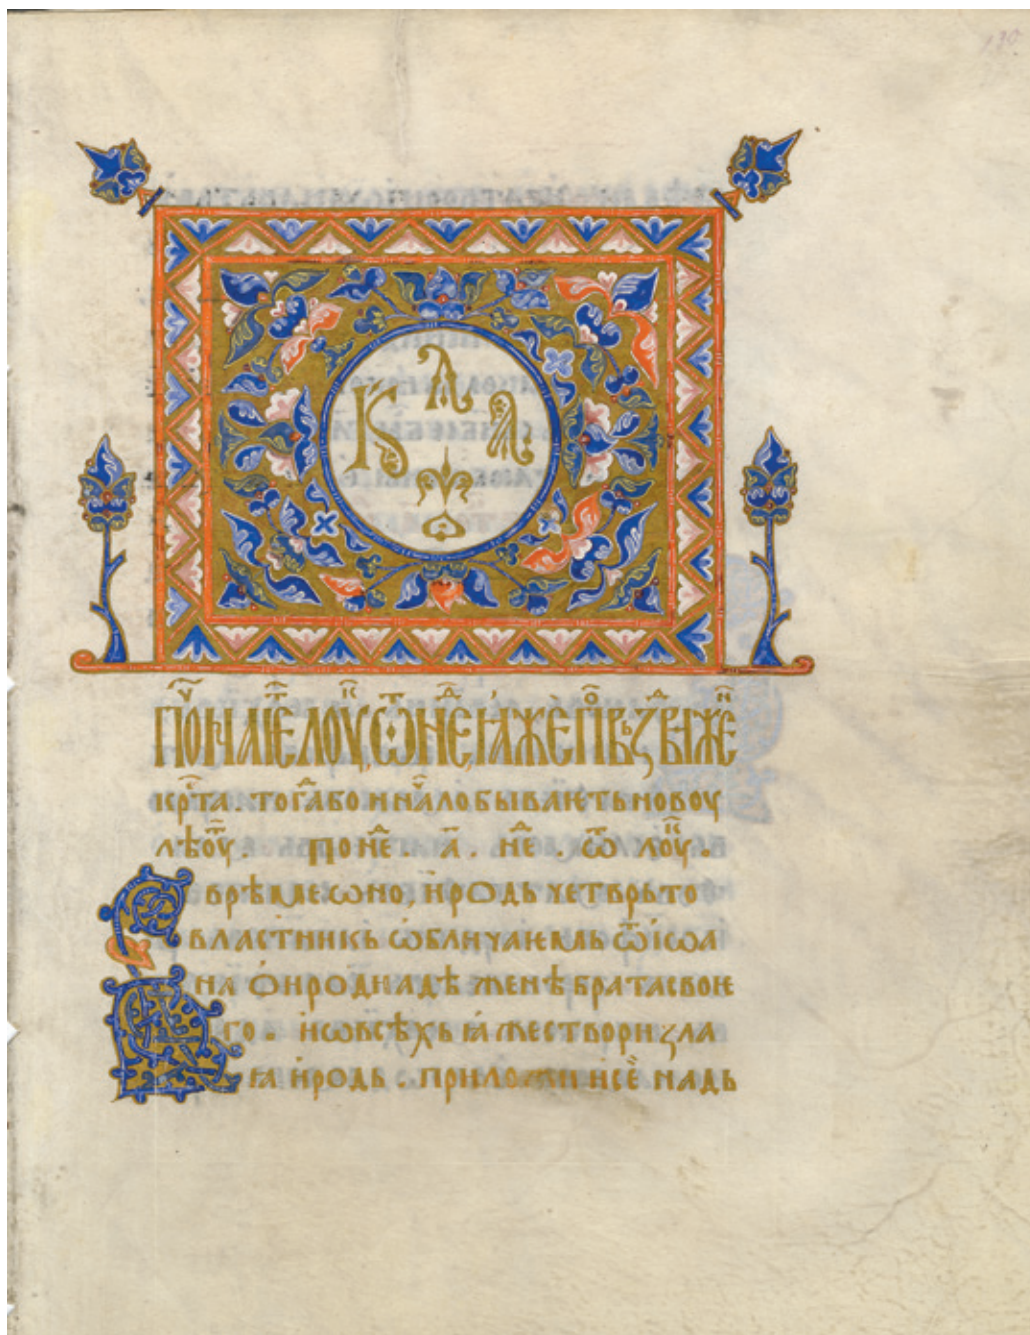 130
К Л А
поⷱ҇н А҇Ѥ ЛОУ, ѾНЕ, ꙖЖЕ ПⷪВЪꙀДВИЖЕⷩ҇
крⷭ҇та. тогⷣа бо и наⷱ҇ло бываѥть новоу
лѣтⷪ҇у. поне҇ⷣ. а҃. не҇ⷣ. ѿ лоуⷦ҇.
врѣме ѡно, иродь четврьто
властникь ѡбличаѥмь ѿ іѡа
на ѡ иродиадѣ женѣ брата своѥ
го. и ѡ всѣхь ꙗже створи ꙁла
ꙗ иродь. приложи и се҇ надь